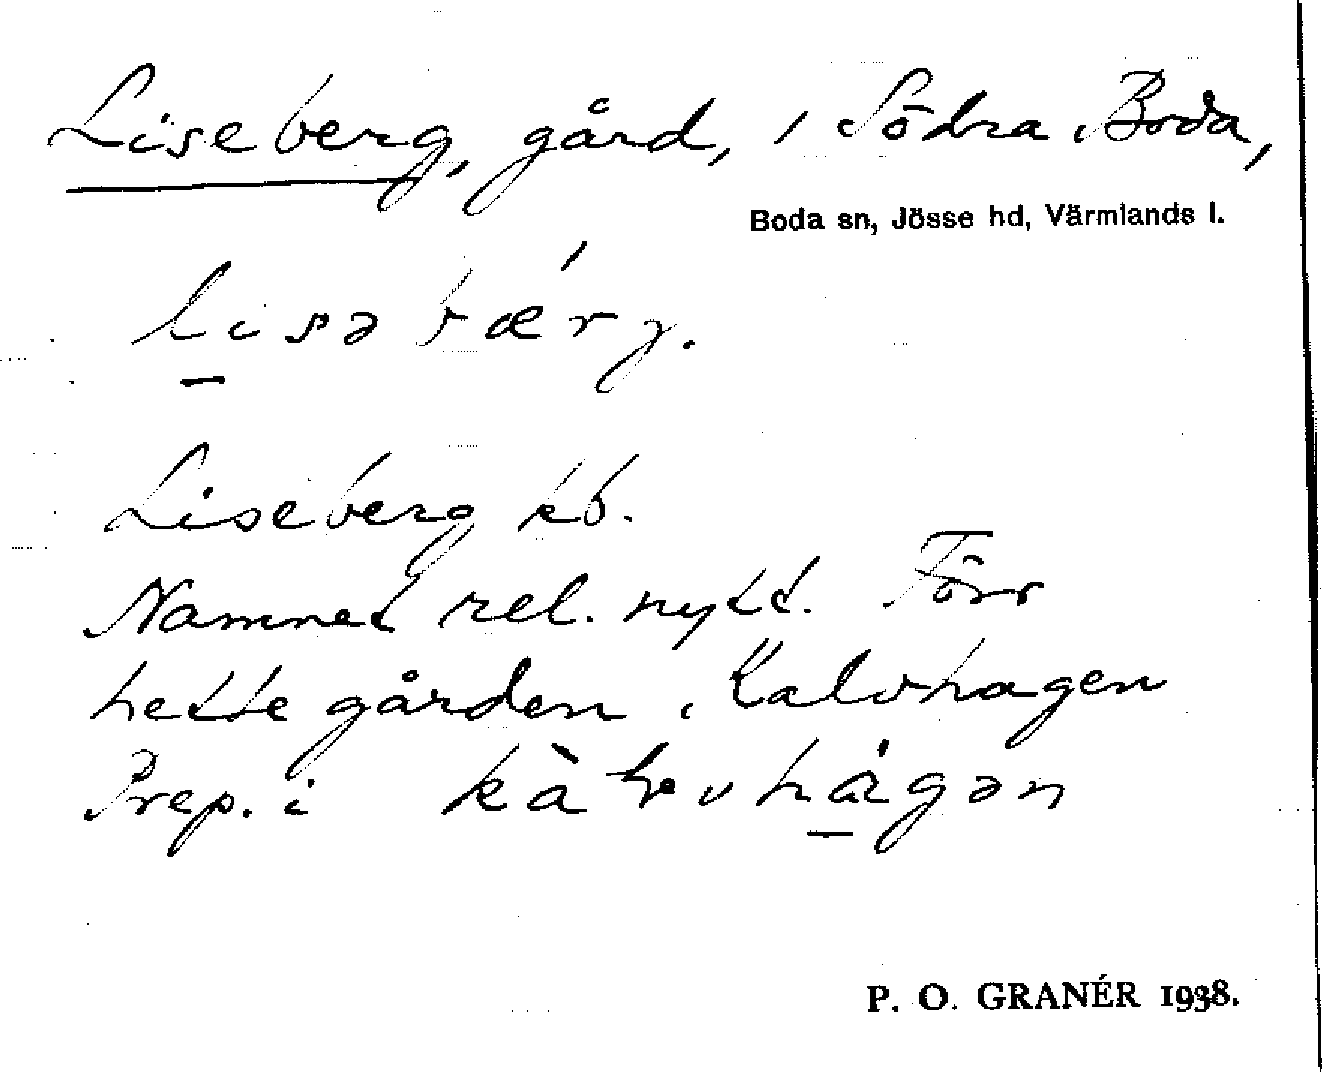 Liseberg, gård, i Södra Boda,
Boda sn, Jösse hd, Värmlands l.
lisəbǽrj.
Liseberg kb.
Namnet rel. nytt. Förr
hette gården, Kalvhagen
Prep. i kàlvhágən
P. O. GRANÉR 1938.